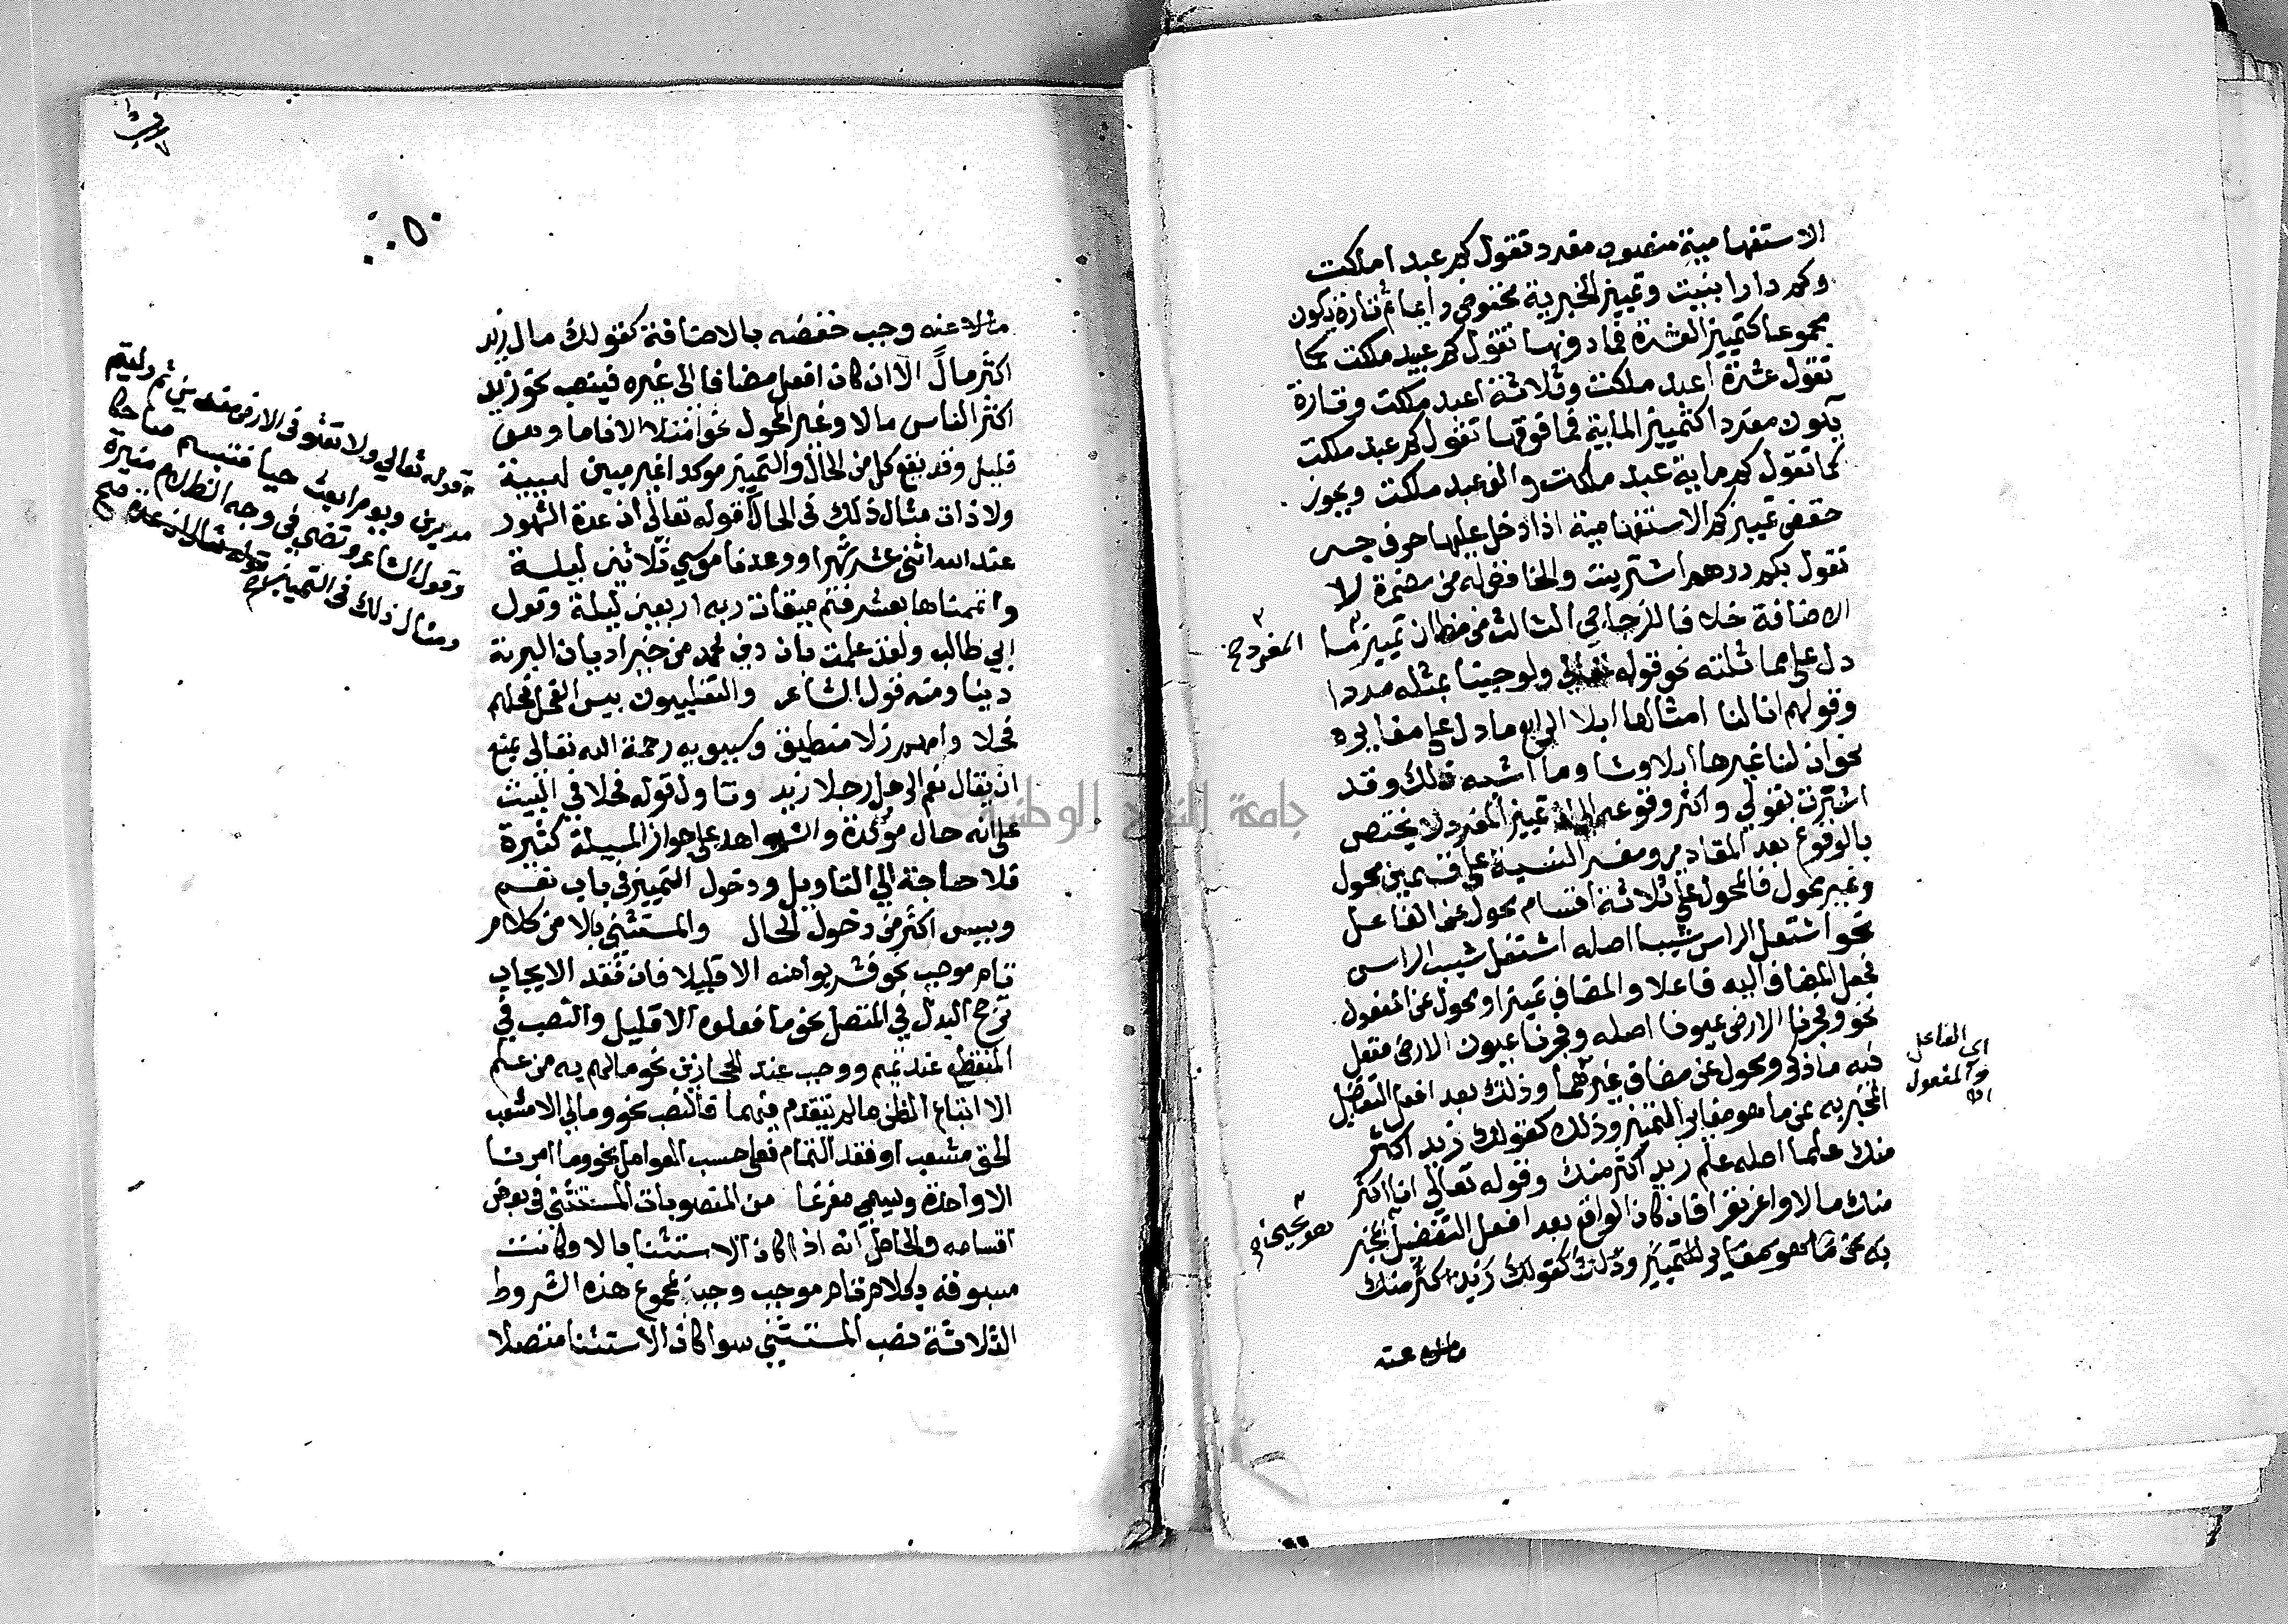 الاستفهامية منصوب مفرد تقول كم عبدا ملكت
وكم دارا بنيت وتمييز الخبرية مخفوض دايما ثم تارة يكون
مجموعا كتمييز العشرة فما دونها تقول كم عبيد ملكت كما
تقول عشرة اعبد ملكت وثلاثة اعبد ملكت وتارة
يكون مفردا كتمييز الماية فما فوقها تقول كم عبد ملكت
كما تقول كم ماية عبد ملكت والف عبد ملكت ويجوز
خفض تمييز كم الاستفهامية اذا دخل عليها حرف جر
تقول بكم درهم اشتريت والخافض له من مضمرة لا
الاضافة خلافا للزجاج الثالث من مظان تمييز ما
المفرد صح
دل على مماثلته نحو قوله تعالى ولو جينا بمثله مددا
وقولهم ان لنا امثالها ابلا الرابع ما دل على مغايره
نحو ان لنا غيرها ابلا وشا وما اشبه ذلك وقد
اشرت بقولي واكثر وقوعه الى ان تمييز المفرد لا يختص
بالوقوع بعد المقادير ومفسر النسبة على قسمين محول
وغير محول فالمحول على ثلاثة اقسام محول عن الفاعل
نحو اشتعل الراس شيبا اصله اشتعل شيب الراس
فجعل المضاف اليه فاعلا والمضاف تمييزا ومحول عن المفعول
نحو وفجرنا الارض عيونا اصله وفجرنا عيون الارض ففعل
فيه ما ذكر ومحول عن مضاف غيرهما وذلك بعد افعل التفضيل
اي الفاعل
والمفعول
المخبر به عن ما هو مغاير التمييز وذلك كقولك زيد اكثر
منك علما اصله علم زيد اكثر منك وقوله تعالى انا اكثر
منك مالا واعز نفرا فان كان الواقع بعد افعل التفضيل المخبر
به عن ما هو مغاير للتمييز وذلك كقولك زيد اكثر منك
مالا عنه
٥٠
مالا عنه وجب خفضه بالاضافة كقولك مال زيد
اكثر مال الا ان كان افعل مضافا الى غيره فينصب نحو زيد
اكثر الناس مالا وغير المحول نحو امتلا الانا ما وهو
قليل وقد يقع كل من الحال والتمييز موكدا غير مبين لهيية
ولا ذات مثال ذلك في الحال قوله تعالى ان عدة الشهور
عند الله اثنى عشر شهرا وواعدنا موسى ثلاثين ليلة
واتممناها بعشر فتم ميقات ربه اربعين ليلة وقول
ابي طالب ولقد علمت بان دين محمد من خير اديان البرية
دينا ومنه قول الشاعر والتغلبيون بيس الفحل فحلهم
فحلا وامهم زلا منطيق وسيبويه رحمة الله تعالى يمنع
ان يقال نعم الرجل رجلا زيد وتاول قوله فحلا في البيت
على انه حال موكدة والشواهد على جواز المسيلة كثيرة
فلا حاجة الى التاويل ودخول التمييز في باب نعم
وبيس اكثر من دخول الحال والمستثنى بالا من كلام
تام موجب نحو فشربوا منه الا قليلا فان فقد الايجاب
ترجح البدل في المتصل نحو ما فعلوه الا قليل والنصب في
المنقطع عند تميم ووجب عند الحجازين نحو ما لهم به من علم
الا اتباع الظن ما لم يتقدم فيهما فالنصب نحو ومالي الا مشعب
الحق مشعب او فقد التمام فعلى حسب العوامل نحو وما امرنا
الا واحدة ويسمى مفرغا من المنصوبات المستثنى في بعض
اقسامه والحاصل انه اذا كان الاستثنا بالا وكانت
مسبوقة بكلام تام موجب وجب بمجموع هذه الشروط
الثلاثة نصب المستثنى سوا كان الاستثنا متصلا
قوله تعالى ولا تعثو في الارض مفسدين ثم وليتم
مدبرين ويوم ابعث حيا فتبسم ضاحكا
وقول الشاعر وتضي في وجه الظلام منيرة
ومثال ذلك في التمييز قوله تعالى ان عدة صح
جامعة النجاح الوطنية